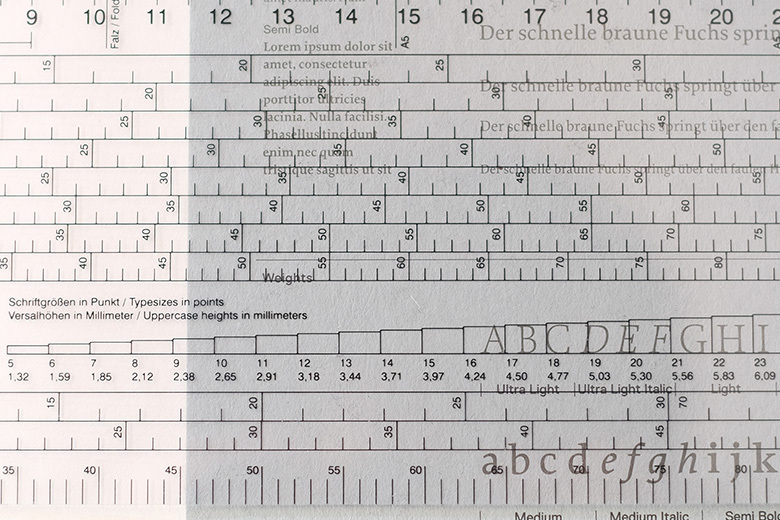 9 10 Falz / Fold 12 13 14 15 A5 16 17 18 19 20
Semi Bold
Lorem ipsum dolor sit
amet, consectetur
adipiscing elit. Duis
porttitor ultricies
lacinia. Nulla facilisi.
Phasellus tincidunt
enim nec quam
tristique sagittis ut sit
Der schnelle braune Fuchs sprin
Der schnelle braune Fuchs springt über
Der schnelle braune Fuchs springt über den fa
Der schnelle braune Fuchs springt über den faulen H
15 20 25 30
20 25 30 35
25 30 35 40 45
25 30 35 40 45 50
25 30 35 40 45 50 55
30 35 40 45 50 55 60
35 40 45 50 55 60 65 70 75
35 40 45 50 55 60 65 70 75 80
Weights
Schriftgrößen in Punkt / Typesizes in points
Versalhöhen in Millimeter / Uppercase heights in millimeters
A B C D E F G H I
5 6 7 8 9 10 11 12 13 14 15 16 17 18 19 20 21 22 23
1,32 1,59 1,85 2,12 2,38 2,65 2,91 3,18 3,44 3,71 3,97 4,24 4,50 4,77 5,03 5,30 5,56 5,83 6,09
Ultra Light Ultra Light Italic Light
15 20 25 30 70
25 30 35 40 45
a b c d e f g h i j k
35 40 45 50 55 60 65 70 75 80
Medium Medium Italic Semi Bold